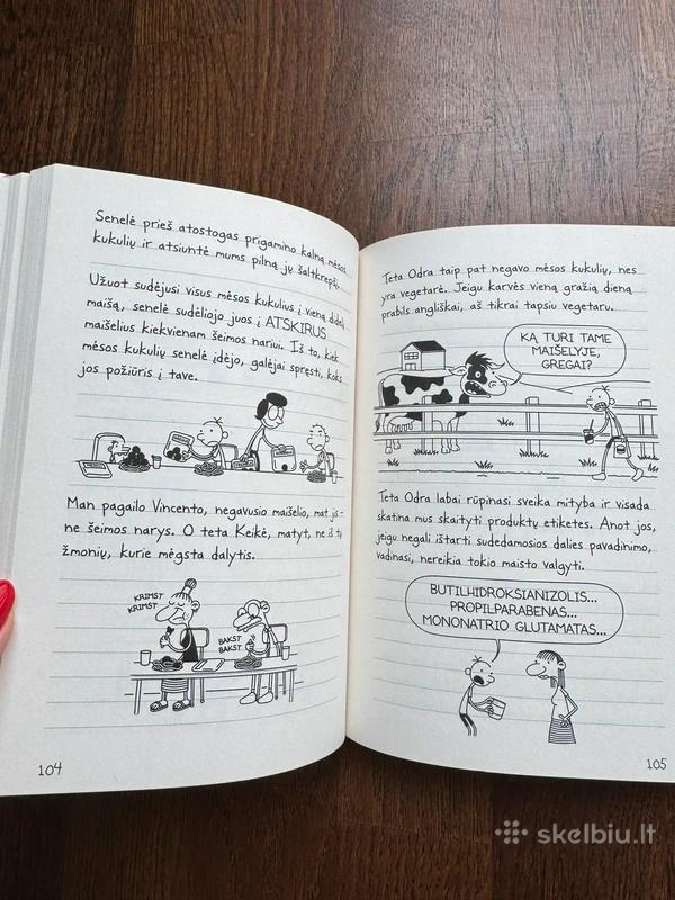 Senelė prieš atostogas prigamino kalną mėsos
kukulių ir atsiuntė mums pilną jų šaltkrepšį.
Užuot sudėjusi visus mėsos kukulius į vieną didelį
maišą, senelė sudėliojo juos į ATSKIRUS
maišelius kiekvienam šeimos nariui. Iš to, kiek
mėsos kukulių senelė įdėjo, galėjai spręsti, koks
jos požiūris į tave.
Man pagailo Vincento, negavusio maišelio, mat jis –
ne šeimos narys. O teta Keikė, matyt, ne iš tų
žmonių, kurie mėgsta dalytis.
KRIMST
KRIMST
BAKST
BAKST
104
Teta Odra taip pat negavo mėsos kukulių, nes
yra vegetarė. Jeigu karvės vieną gražią dieną
prabils angliškai, aš tikrai tapsiu vegetaru.
KĄ TURI TAME
MAIŠELYJE,
GREGAI?
Teta Odra labai rūpinasi sveika mityba ir visada
skatina mus skaityti produktų etiketes. Anot jos,
jegu negali ištarti sudedamosios dalies pavadinimo,
vadinasi, nereikia tokio maisto valgyti.
BUTILHIDROKSIANIZOLIS...
PROPILPARABENAS...
MONONATRIO GLUTAMATAS...
105
skelbiu.lt